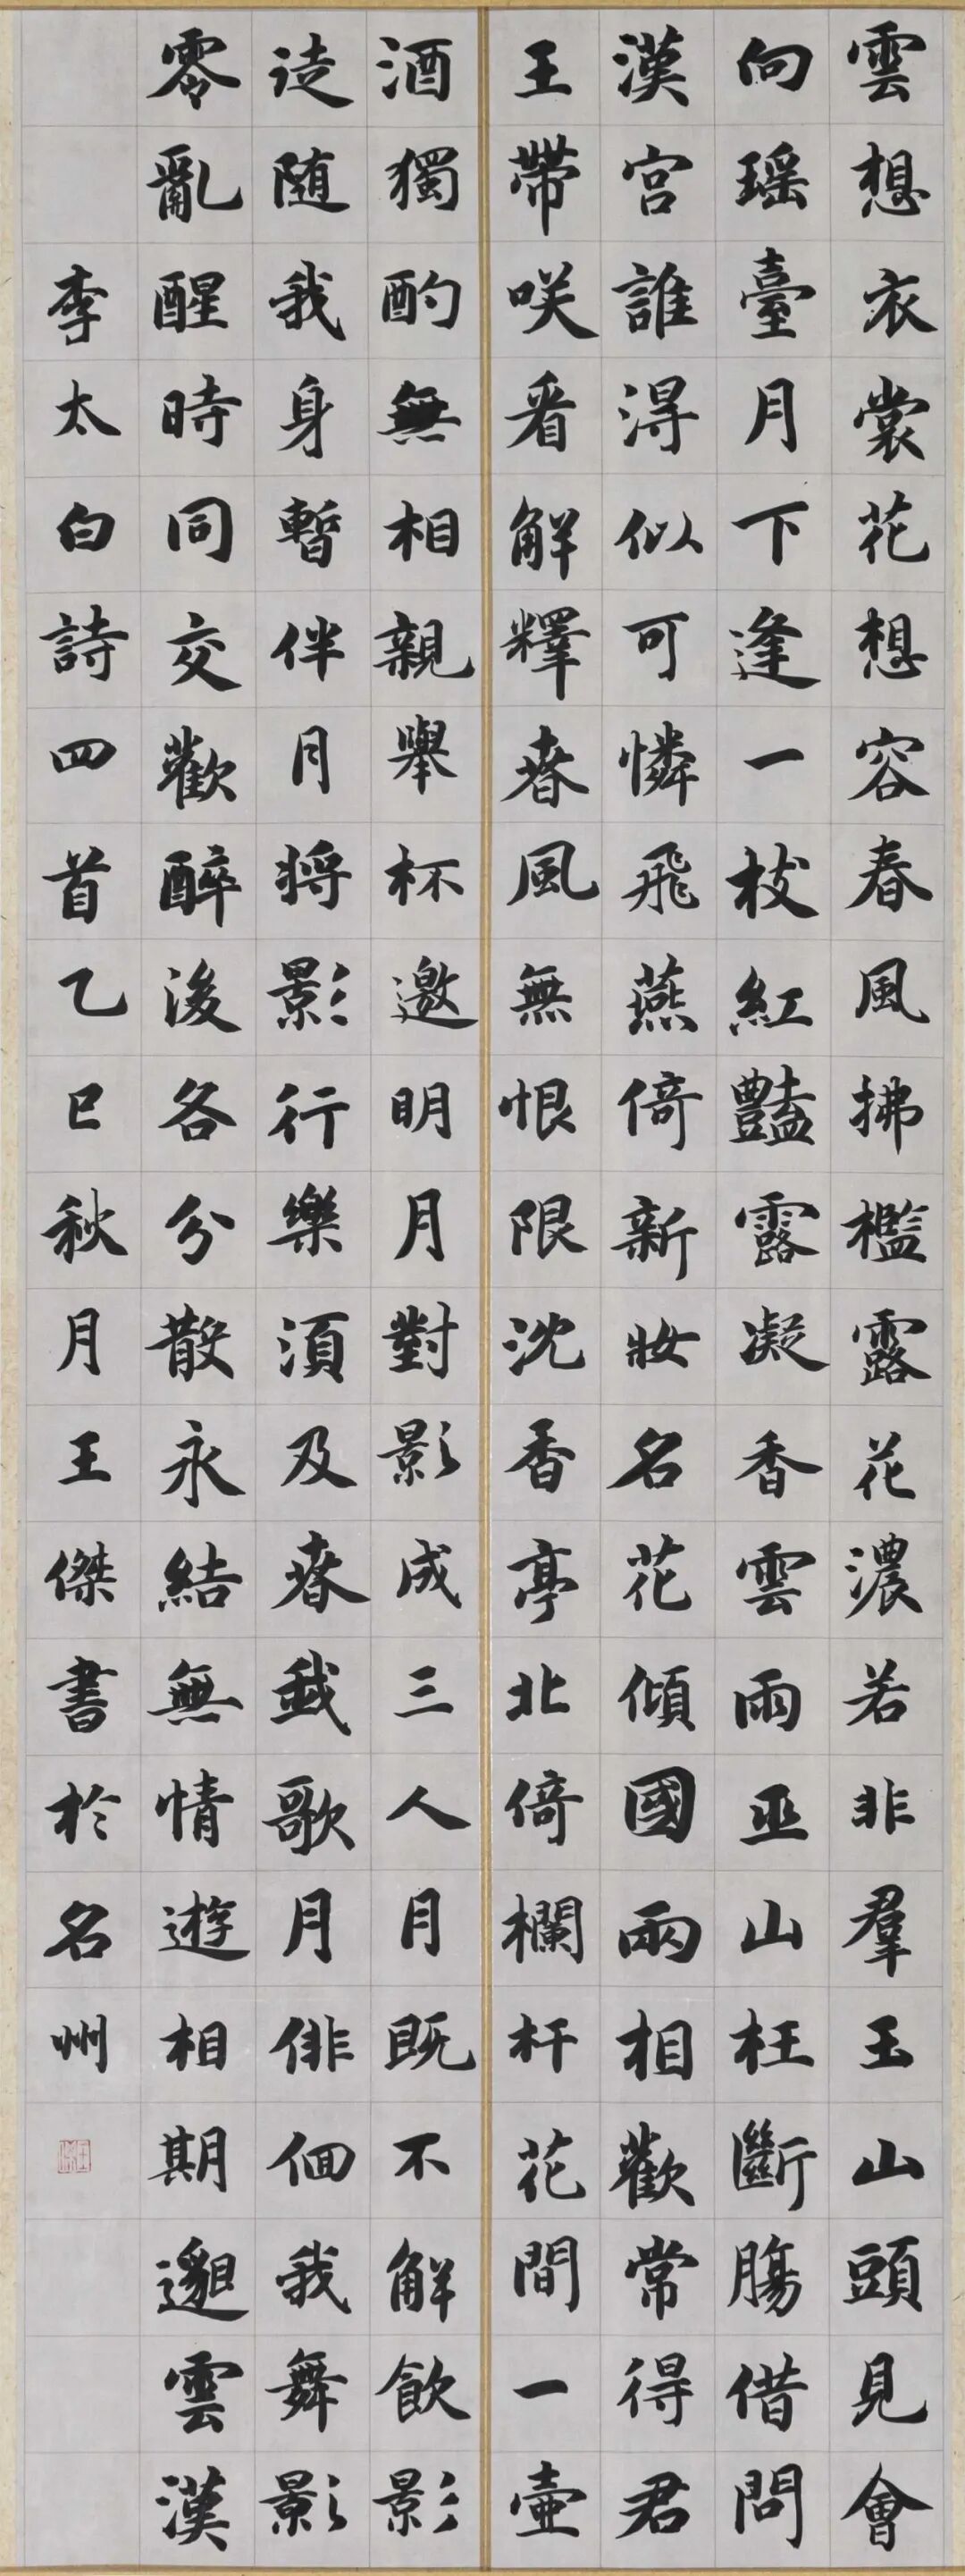 雲想衣裳花想容春風拂檻露花濃若非羣玉山頭見會
向瑶臺月下逢一枝紅豔露凝香雲雨巫山枉斷腸借問
漢宮誰得似可憐飛燕倚新妝名花傾國兩相歡常得君
王帶咲看解釋春風無恨限沈香亭北倚欄杆花間一壺
酒獨酌無相親舉杯邀明月對影成三人月既不解飲影
徒随我身暫伴月將影行樂須及春我歌月徘徊我舞影
零亂醒時同交歡醉後各分散永結無情遊相期邈雲漢
李太白詩四首乙巳秋月王傑書於名州